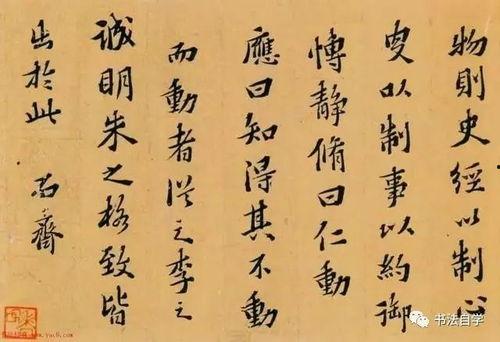 物則史經以制心
以制事以約御
愽靜脩曰仁動
應曰知得其不動
而動者從之李之
誠明朱之格致皆
出於此 齋
书法自学
www.yac8.com